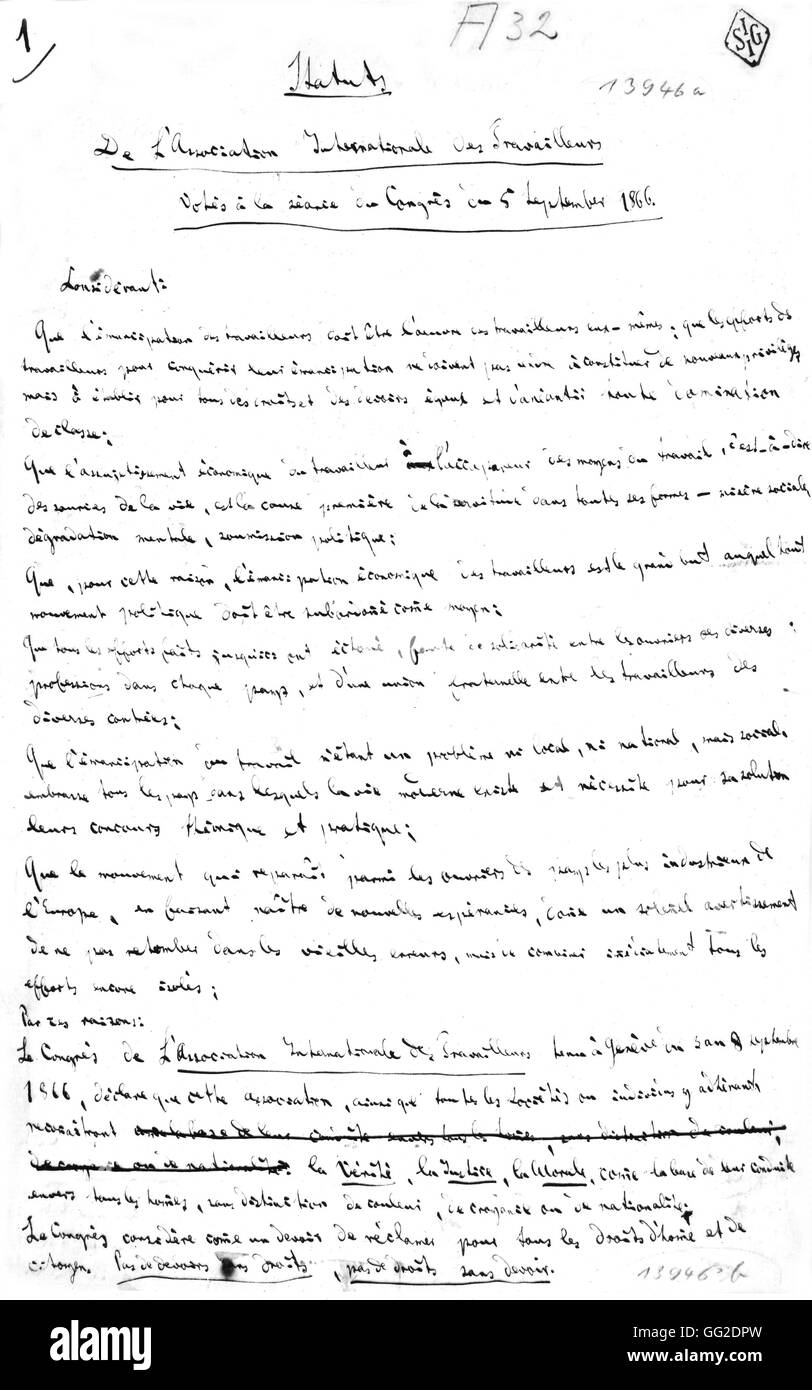 1
A32
SIGI
Statuts
13946a
De L'Association Internationale des Travailleurs
Votés à la séance du Congrès du 5 September 1866.
Considérant:
Que l'émancipation des travailleurs doit être l'œuvre des travailleurs eux-mêmes; que les efforts des
travailleurs pour conquérir leur émancipation ne doivent pas tendre à constituer de nouveaux privilèges
mais à établir pour tous des droits et des devoirs égaux et d'anéantir toute domination
de classe;
Que l'assujetissement économique du travailleur à l'accapareur des moyens du travail, c'est-à-dire
des sources de la vie, est la cause première de la servitude dans toutes ses formes – misère sociale,
dégradation mentale, soumission politique;
Que, pour cette raison, l'émancipation économique des travailleurs est le grand but auquel tout
mouvement politique doit être subordonné come moyen;
Que tous les efforts faits jusqu'ici ont échoué, faute de solidarité entre les ouvriers des diverses
professions dans chaque pays, et d'une union fraternelle entre les travailleurs des
diverses contrées;
Que l'émancipation du travail n'étant un problème ni local, ni national, mais social,
embrasse tous les pays dans lesquels la vie moderne existe et nécessite pour sa solution
leurs concours théorique et pratique;
Que le mouvement qui reparaît parmi les ouvriers des pays les plus industrieux de
l'Europe, en faisant naître de nouvelles espérances, done un solenel avertissement
de ne pas retomber dans les vieilles erreurs, mais de combiner imédiatement tous les
efforts encore isolés;
Par ces raisons:
Le Congrès de L'Association Internationale des Travailleurs tenu à Genève du 3 au 8 septembre
1866, déclare que cette association, ainsi que toutes les sociétés ou individus y adhérants
reconaitront
la Vérité, la Justice, la Morale, come la base de leur conduite
envers tous les homes, sans distinction de couleur, de croyance ou de nationalité.
Le Congrès considère come un devoir de réclamer pour tous les droits d'home et de
citoyen. Pas de devoirs sans droits, pas de droits sans devoir.
13946 b
alamy
Image ID: GG2DPW
www.alamy.com